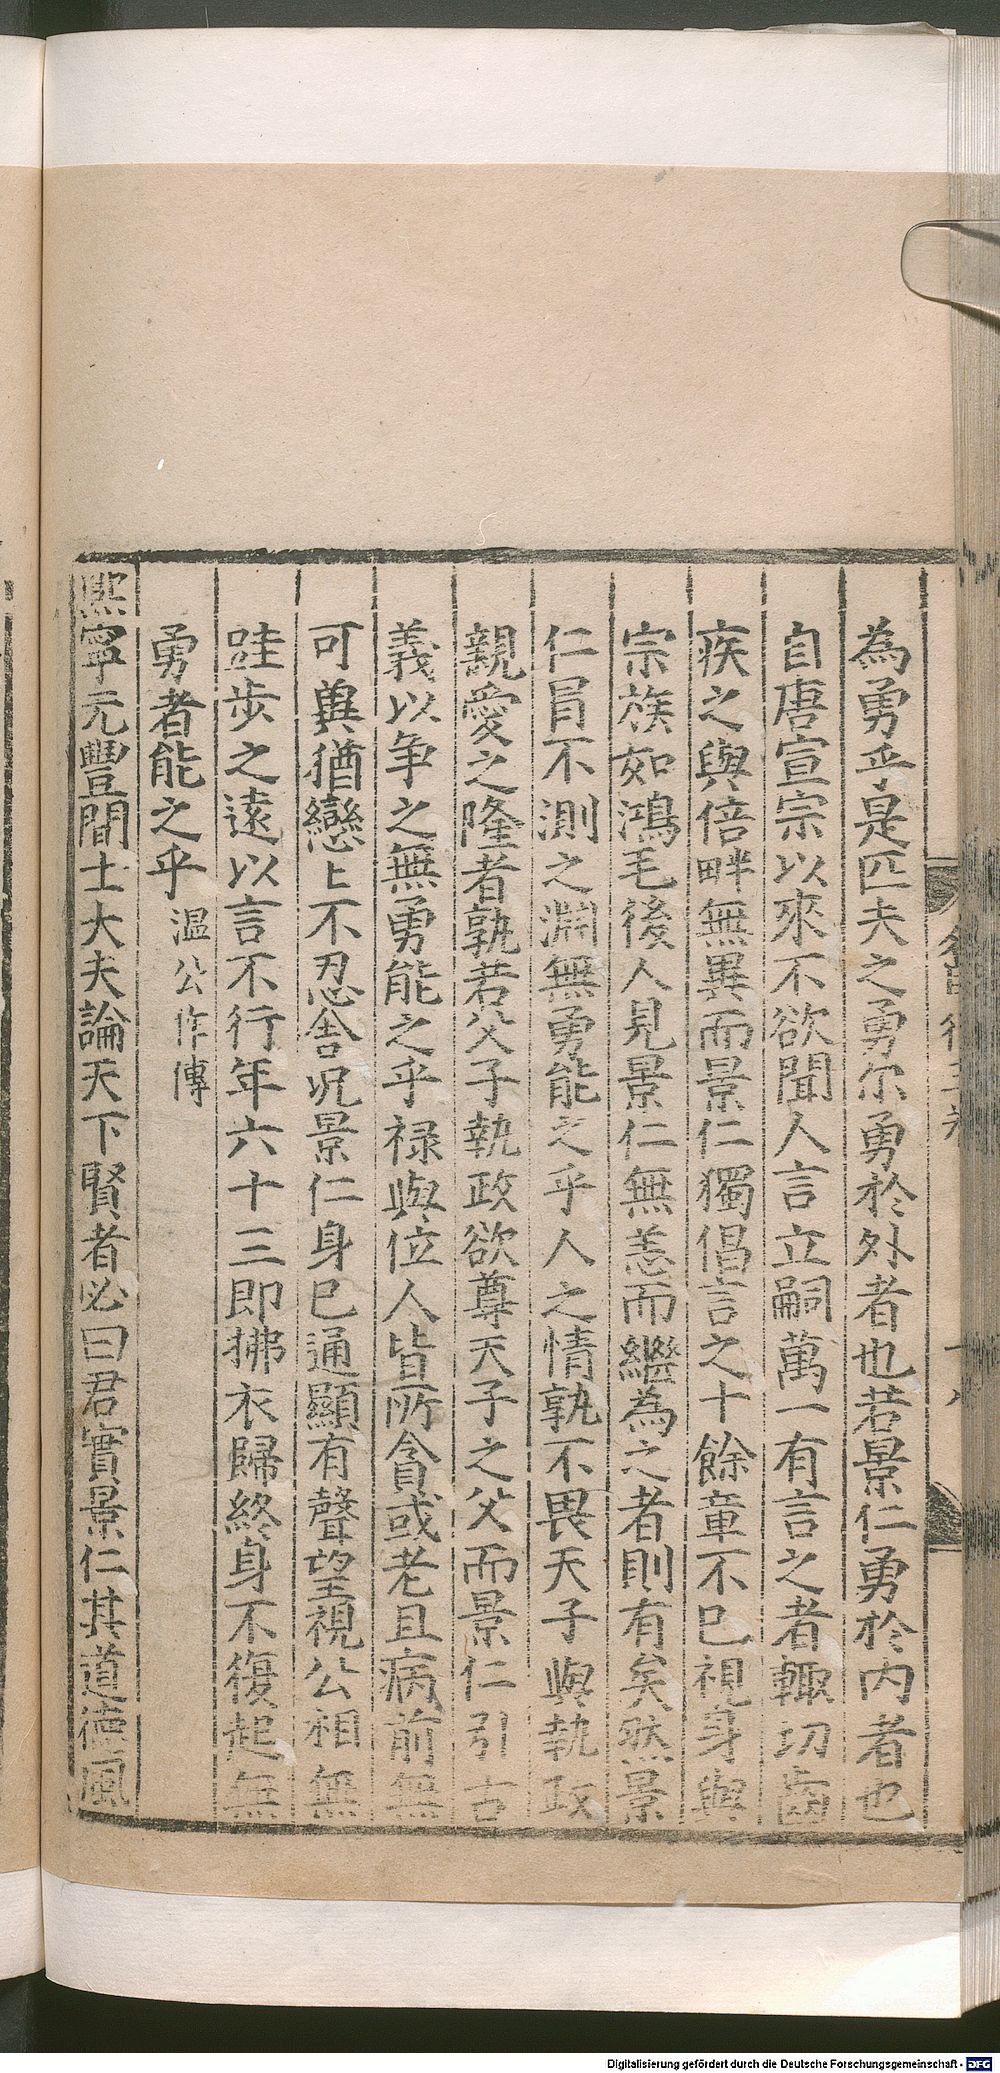 為勇乎是匹夫之勇尓勇於外者也若景仁勇於内者也
自唐宣宗以來不欲聞人言立嗣萬一有言之者輙切齒
疾之與倍畔無異而景仁獨倡言之十餘章不已視身與
宗族如鴻毛後人見景仁無恙而繼為之者則有矣然景
仁冐不測之淵無勇能之乎人之情孰不畏天子與執政
親愛之隆者孰若父子執政欲尊天子之父而景仁引古
義以争之無勇能之乎禄與位人皆所貪或老且病前無
可兾猶戀戀不忍舍况景仁身已通顯有聲望視公相無
跬步之遠以言不行年六十三即拂衣歸終身不復起無
勇者能之乎温公作傳
熙寧元豐間士大夫論天下賢者必曰君實景仁其道德風
Digitalisierung gefördert durch die Deutsche Forschungsgemeinschaft - DFG